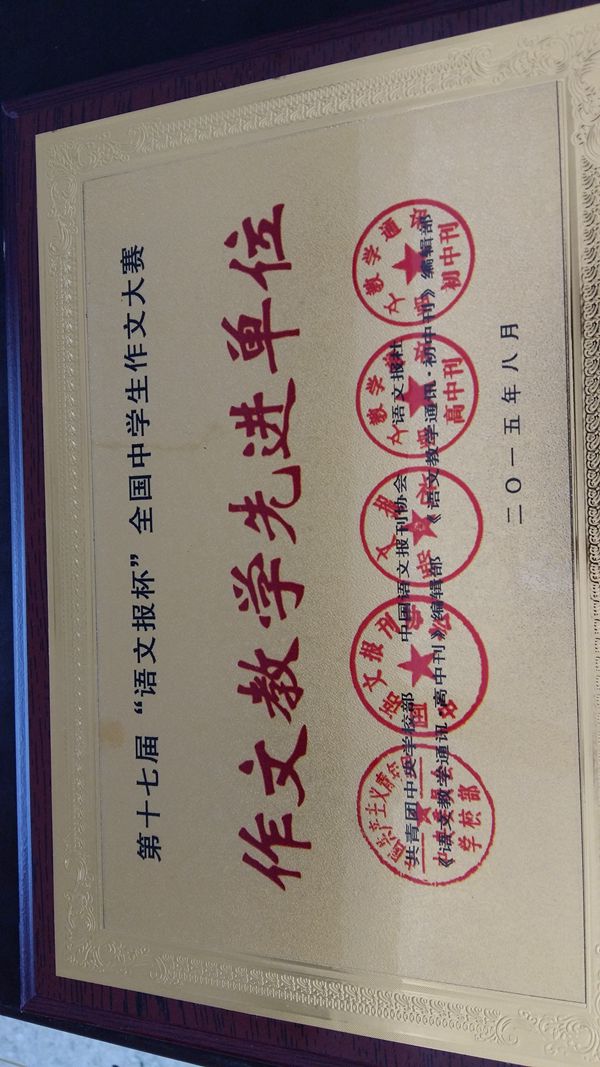 第十七届“语文报杯”全国中学生作文大赛
作文教学先进单位
共青团中央学校部 中国语文报刊协会 语文报社
《语文教学通讯·高中刊》编辑部 《语文教学通讯·初中刊》编辑部
学校部
高中刊
初中刊
二〇一五年八月